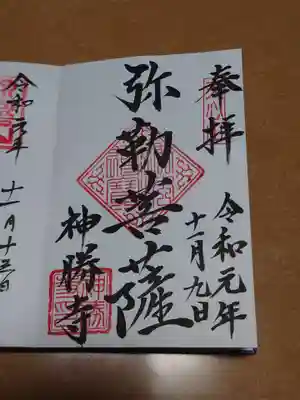 奉拝
令和元年
十一月九日
弥勒菩薩
神勝寺
令和元年
十一月十三日